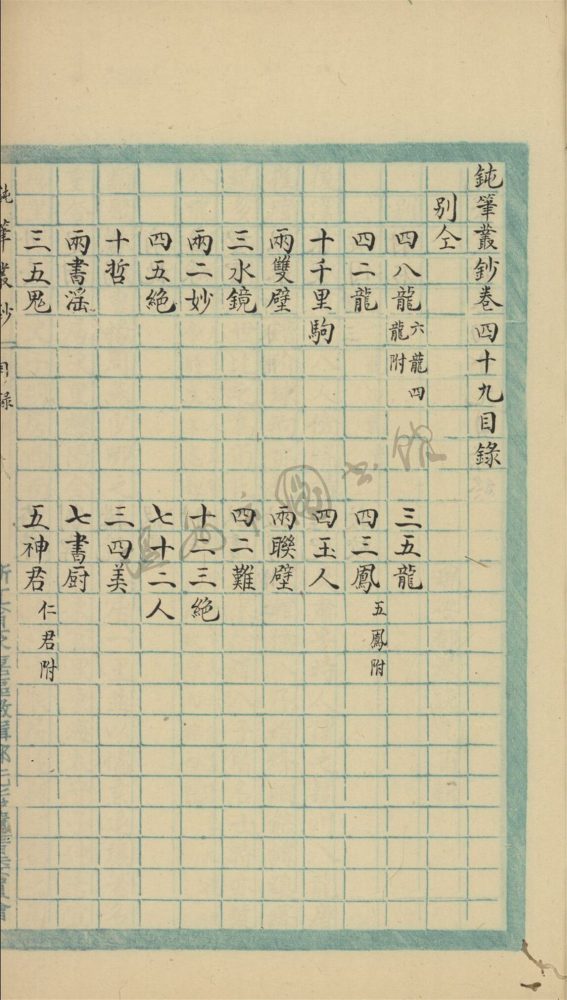 鈍筆叢鈔卷四十九目錄
別仝
四八龍 六龍四龍附 三五龍
四二龍 四三鳳 五鳳附
十千里駒 四玉人
兩雙璧 兩聯璧
三水鏡 四二難
兩二妙 十二三絕
四五絕 七十二人
十哲 三四美
兩書滛 七書厨
三五鬼 五神君 仁君附
鈍筆叢鈔 目錄